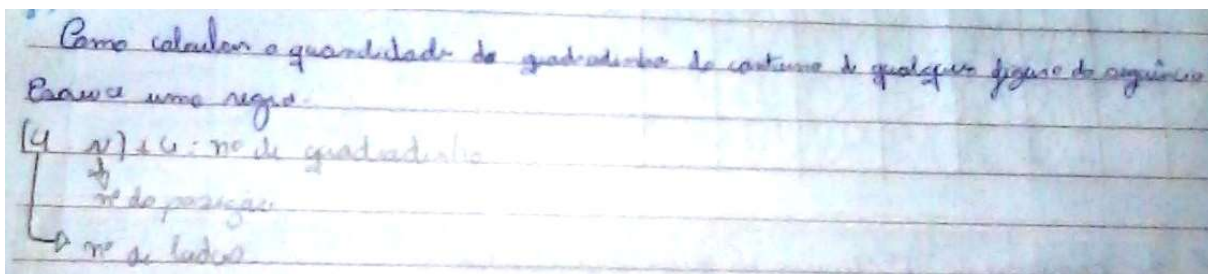 Como calcular a quantidade de quadradinho do contorno de qualquer figura da sequência
Escreva uma regra.
(4 N) + 4 = nº de quadradinho
nº da posição
nº de lados